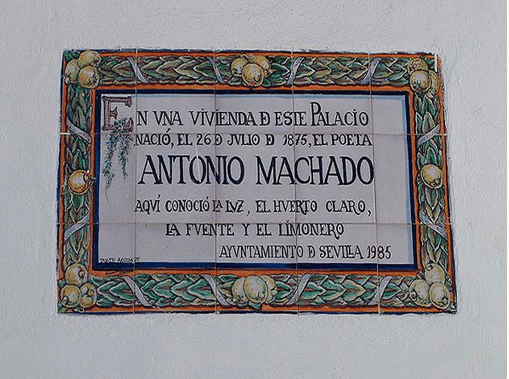 EN VNA VIVIENDA D ESTE PALACIO
NACIÓ, EL 26 D JVLIO D 1875, EL POETA
ANTONIO MACHADO
AQVÍ CONOCIÓ LA LVZ, EL HVERTO CLARO,
LA FVENTE Y EL LIMONERO
AYVNTAMIENTO D SEVILLA 1985